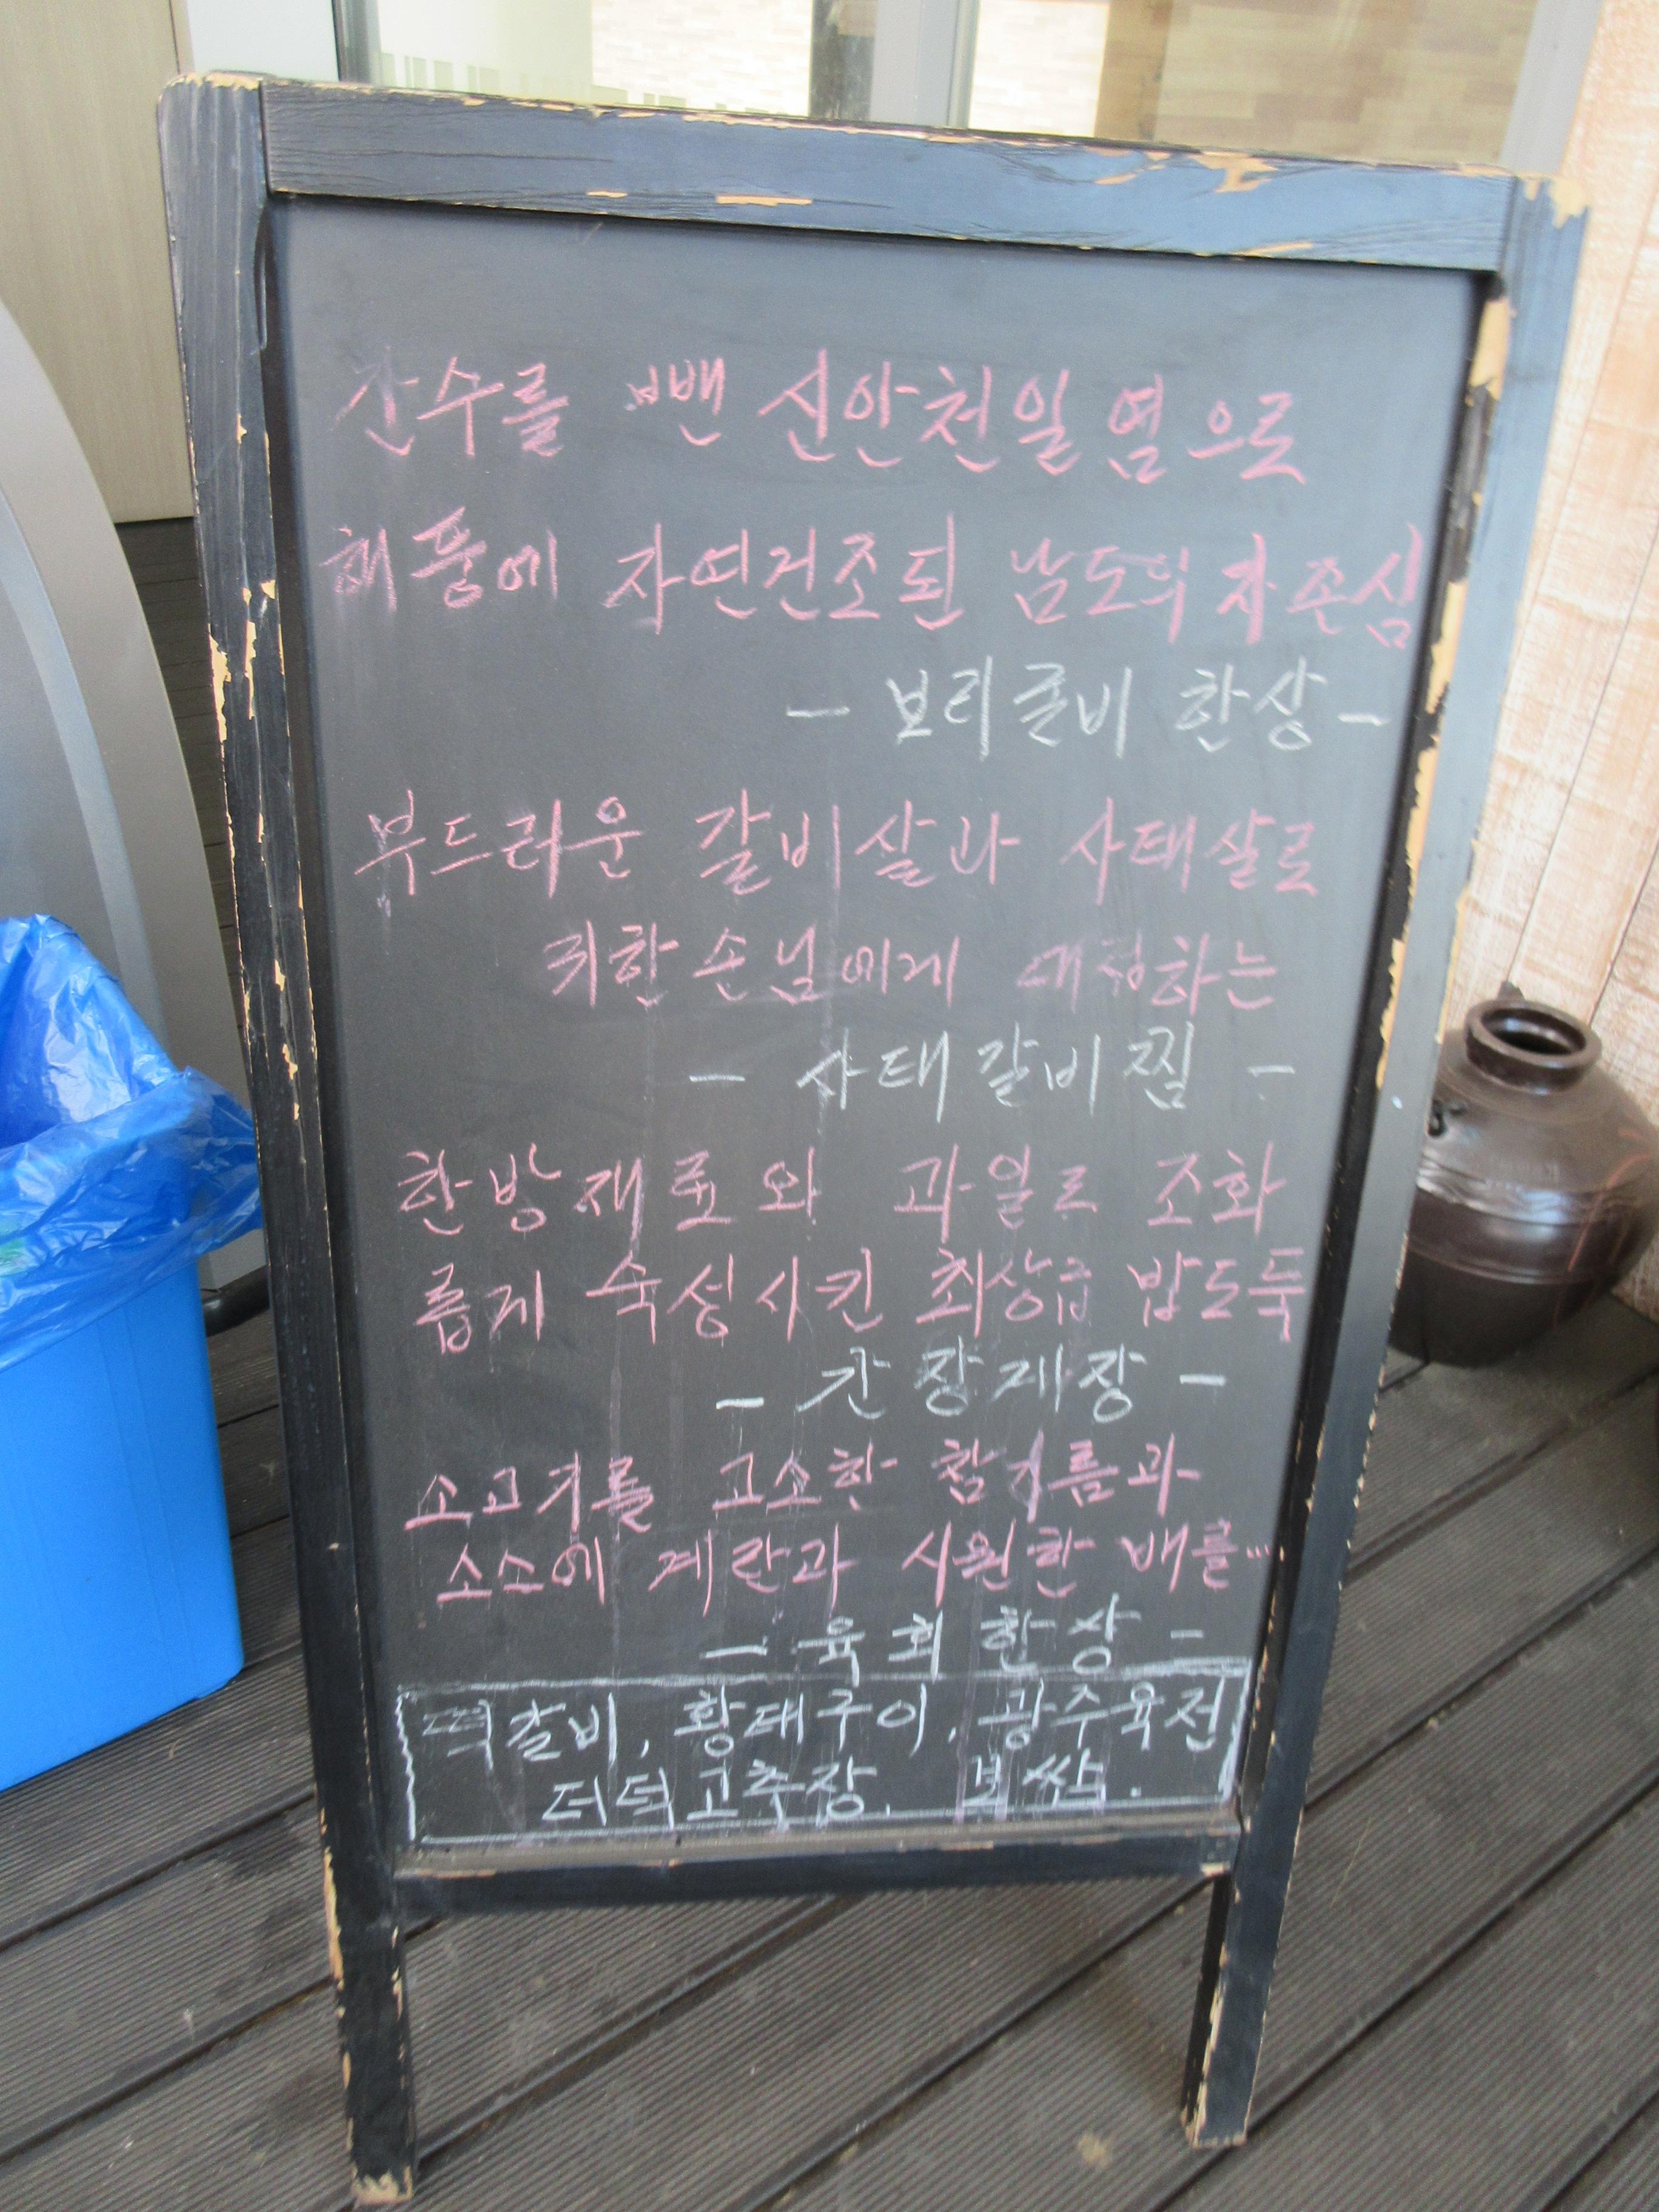 간수를 뺀 신안천일염으로
해풍에 자연건조된 남도의 자존심
- 보리굴비 한상 -
부드러운 갈비살과 사태살로
귀한 손님에게 대접하는
- 사태갈비찜 -
한방재료와 과일로 조화
롭게 숙성시킨 최상급 밥도둑
- 간장게장 -
소고기를 고소한 참기름과
소스에 계란과 시원한 배를...
- 육회한상 -
떡갈비, 황태구이, 광주육전
더덕고추장, 보쌈.